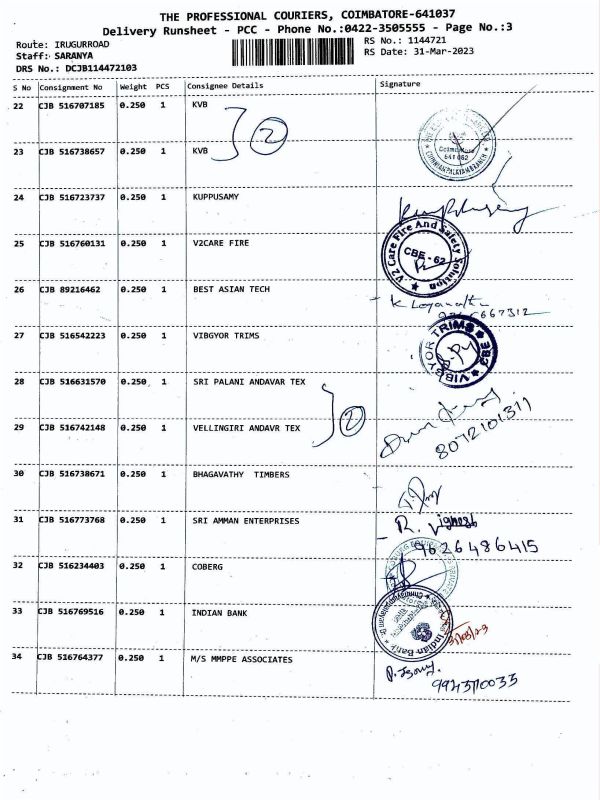 THE PROFESSIONAL COURIERS, COIMBATORE-641037
Delivery Runsheet - PCC - Phone No.:0422-3505555 - Page No.:3
Route: IRUGURROAD RS No.: 1144721
Staff: SARANYA RS Date: 31-Mar-2023
DRS No.: DCJB114472103
S No Consignment No Weight PCS Consignee Details Signature
22 CJB 516707185 0.250 1 KVB
2
23 CJB 516738657 0.250 1 KVB
Coimbatore
641 062
24 CJB 516723737 0.250 1 KUPPUSAMY
25 CJB 516760131 0.250 1 V2CARE FIRE
V2 Care Fire And Safety Solution
CBE - 62
26 CJB 89216462 0.250 1 BEST ASIAN TECH
27 CJB 516542223 0.250 1 VIBGYOR TRIMS
VIBGYOR TRIMS CBE
28 CJB 516631570 0.250 1 SRI PALANI ANDAVAR TEX
2
29 CJB 516742148 0.250 1 VELLINGIRI ANDAVR TEX
8072101311
30 CJB 516738671 0.250 1 BHAGAVATHY TIMBERS
31 CJB 516773768 0.250 1 SRI AMMAN ENTERPRISES
R. Vignesh
9626486415
32 CJB 516234403 0.250 1 COBERG
33 CJB 516769516 0.250 1 INDIAN BANK
Indian Bank
34 CJB 516764377 0.250 1 M/S MMPPE ASSOCIATES